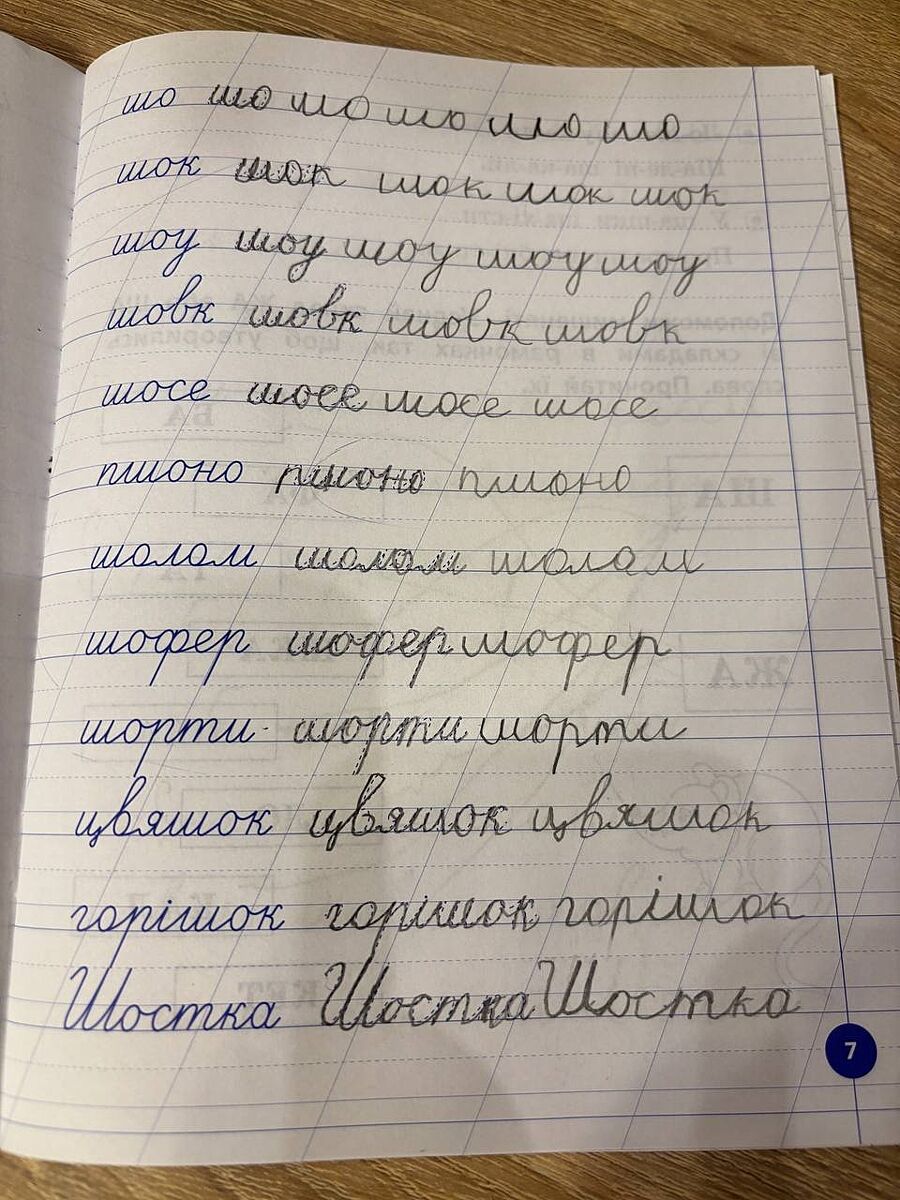 шо шо шо шо шо шо
шок шок шок шок шок
шоу шоу шоу шоу шоу
шовк шовк шовк шовк
шосе шосе шосе шосе
пшоно пшоно пшоно
шолом шолом шолом
шофер шофер шофер
шорти шорти шорти
цвяшок цвяшок цвяшок
горішок горішок горішок
Шостка Шостка Шостка
7